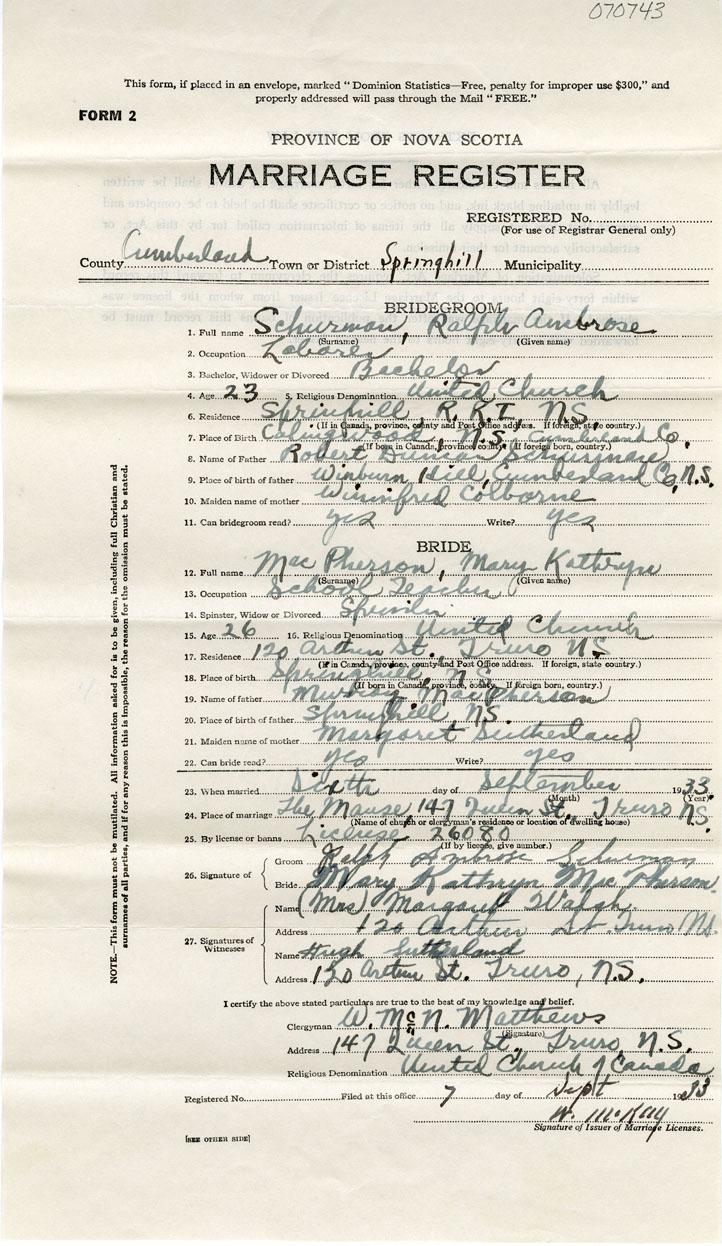 070743
This form, if placed in an envelope, marked "Dominion Statistics—Free, penalty for improper use $300," and
properly addressed will pass through the Mail "FREE."
FORM 2
PROVINCE OF NOVA SCOTIA
MARRIAGE REGISTER
REGISTERED No.
(For use of Registrar General only)
County Cumberland Town or District Springhill Municipality
BRIDEGROOM
1. Full name Schurman, Ralph Ambrose
(Surname) (Given name)
2. Occupation Laborer
3. Bachelor, Widower or Divorced Bachelor
4. Age 23 5. Religious Denomination United Church
6. Residence Springhill, R.R.1, N.S.
(If in Canada, province, county and Post Office address. If foreign, state country.)
7. Place of Birth Collingwood, N.S. Cumberland Co.
(If born in Canada, province, county. If foreign born, country.)
8. Name of Father Robert Duncan Schurman
9. Place of birth of father Hill, Cumberland Co, N.S.
10. Maiden name of mother Winnifred Colborne
11. Can bridegroom read? yes Write? yes
BRIDE
12. Full name MacPherson, Mary Kathryn
(Surname) (Given name)
13. Occupation School Teacher
14. Spinster, Widow or Divorced Spinster
15. Age 26 16. Religious Denomination United Church
17. Residence 120 Arthur St. Truro N.S.
(If in Canada, province, county and Post Office address. If foreign, state country.)
18. Place of birth Springhill, N.S.
(If born in Canada, province, county. If foreign born, country.)
19. Name of father Murray MacPherson
20. Place of birth of father Springhill, N.S.
21. Maiden name of mother Margaret Sutherland
22. Can bride read? yes Write? yes
23. When married Sixth day of September 1933
(Month) (Year)
24. Place of marriage The Manse 147 Queen St., Truro N.S.
(Name of church or clergyman's residence or location of dwelling house)
25. By license or banns License 26080
(If by license, give number.)
26. Signature of Groom Ralph Ambrose Schurman
Bride Mary Kathryn MacPherson
27. Signatures of Witnesses
Name (Mrs) Margaret Walsh
Address 120 Arthur St. Truro N.S.
Name Hugh Sutherland
Address 120 Arthur St. Truro, N.S.
I certify the above stated particulars are true to the best of my knowledge and belief.
Clergyman W. McN. Matthews
(Signature)
Address 147 Queen St., Truro N.S.
Religious Denomination United Church of Canada
Registered No. Filed at this office 7 day of Sept 1933
W. McKay
Signature of Issuer of Marriage Licenses.
[SEE OTHER SIDE]
NOTE.—This form must not be mutilated. All information asked for is to be given, including full Christian and
surnames of all parties, and if for any reason this is impossible, the reason for the omission must be stated.